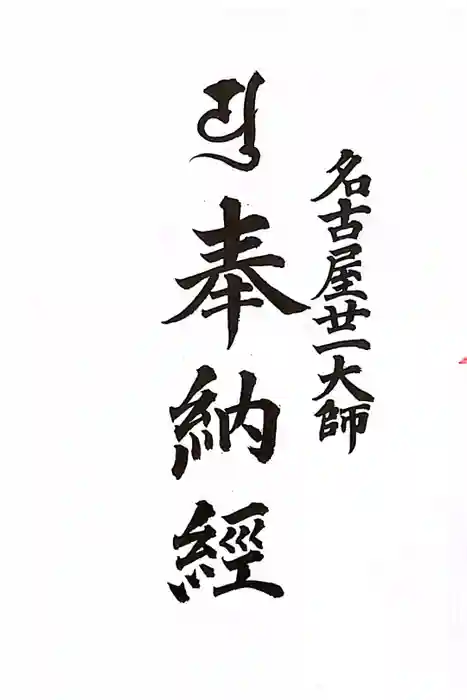 名古屋廿一大師
奉納經